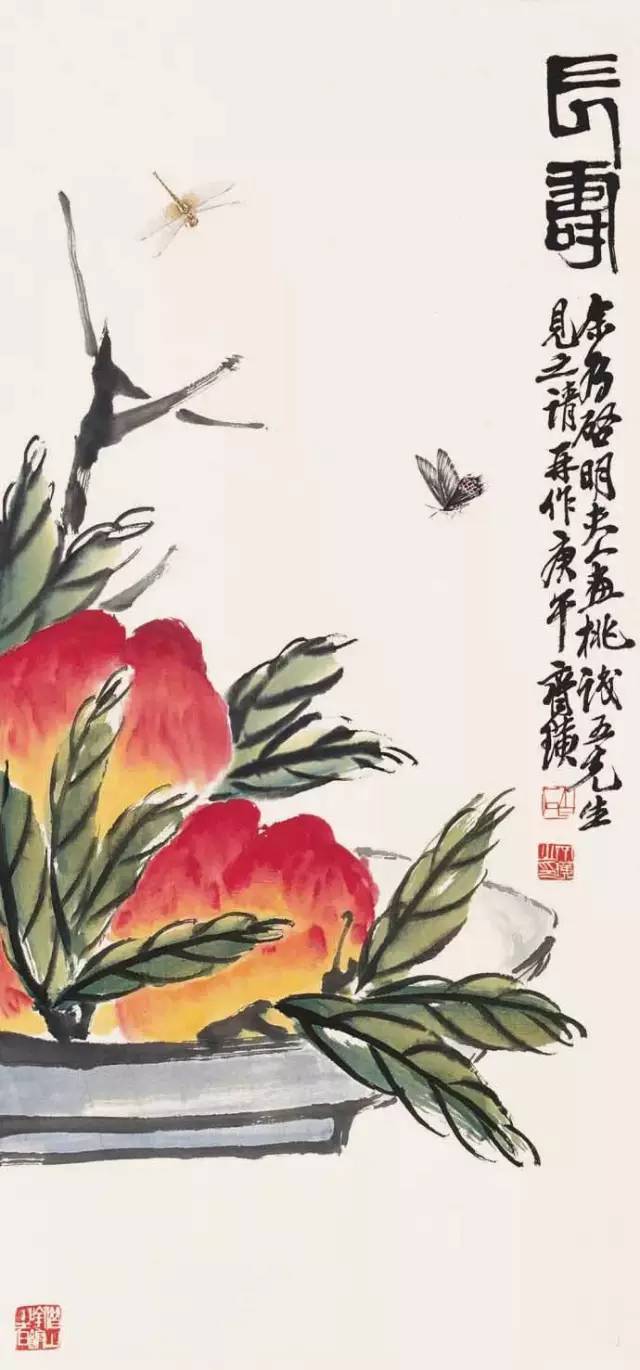 長壽
余為啓明夫人畫桃五先生
見之請再作庚午齊璜